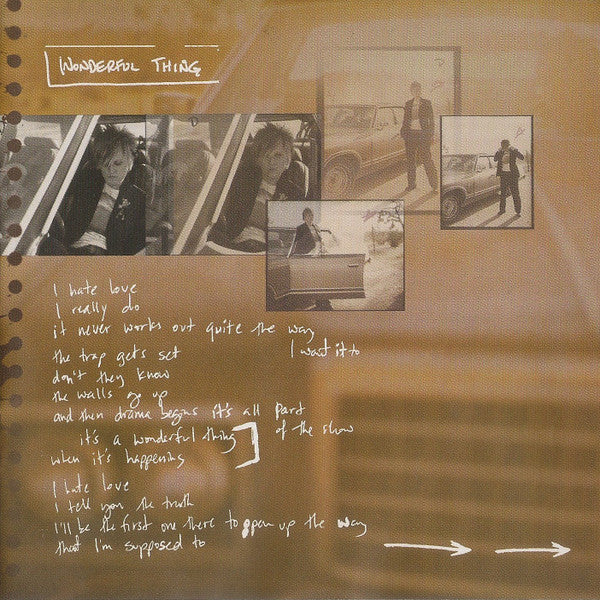 WONDERFUL THING
I hate love
I really do
it never works out quite the way
I want it to
the trap gets set
don't they know
the walls go up
and then drama begins it's all part
of the show
it's a wonderful thing
when it's happening
I hate love
I tell you the truth
I'll be the first one there to open up the way
that I'm supposed to